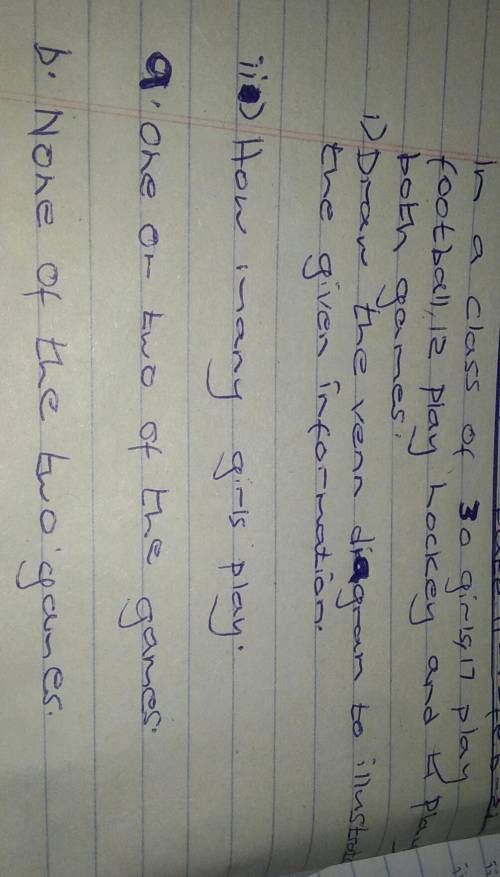 In a class of 30 girls, 17 play
football, 12 play hockey and 4 play
both games.
i) Draw the venn diagram to illustrate
the given information.
ii) How many girls play.
a. One or two of the games.
b. None of the two games.